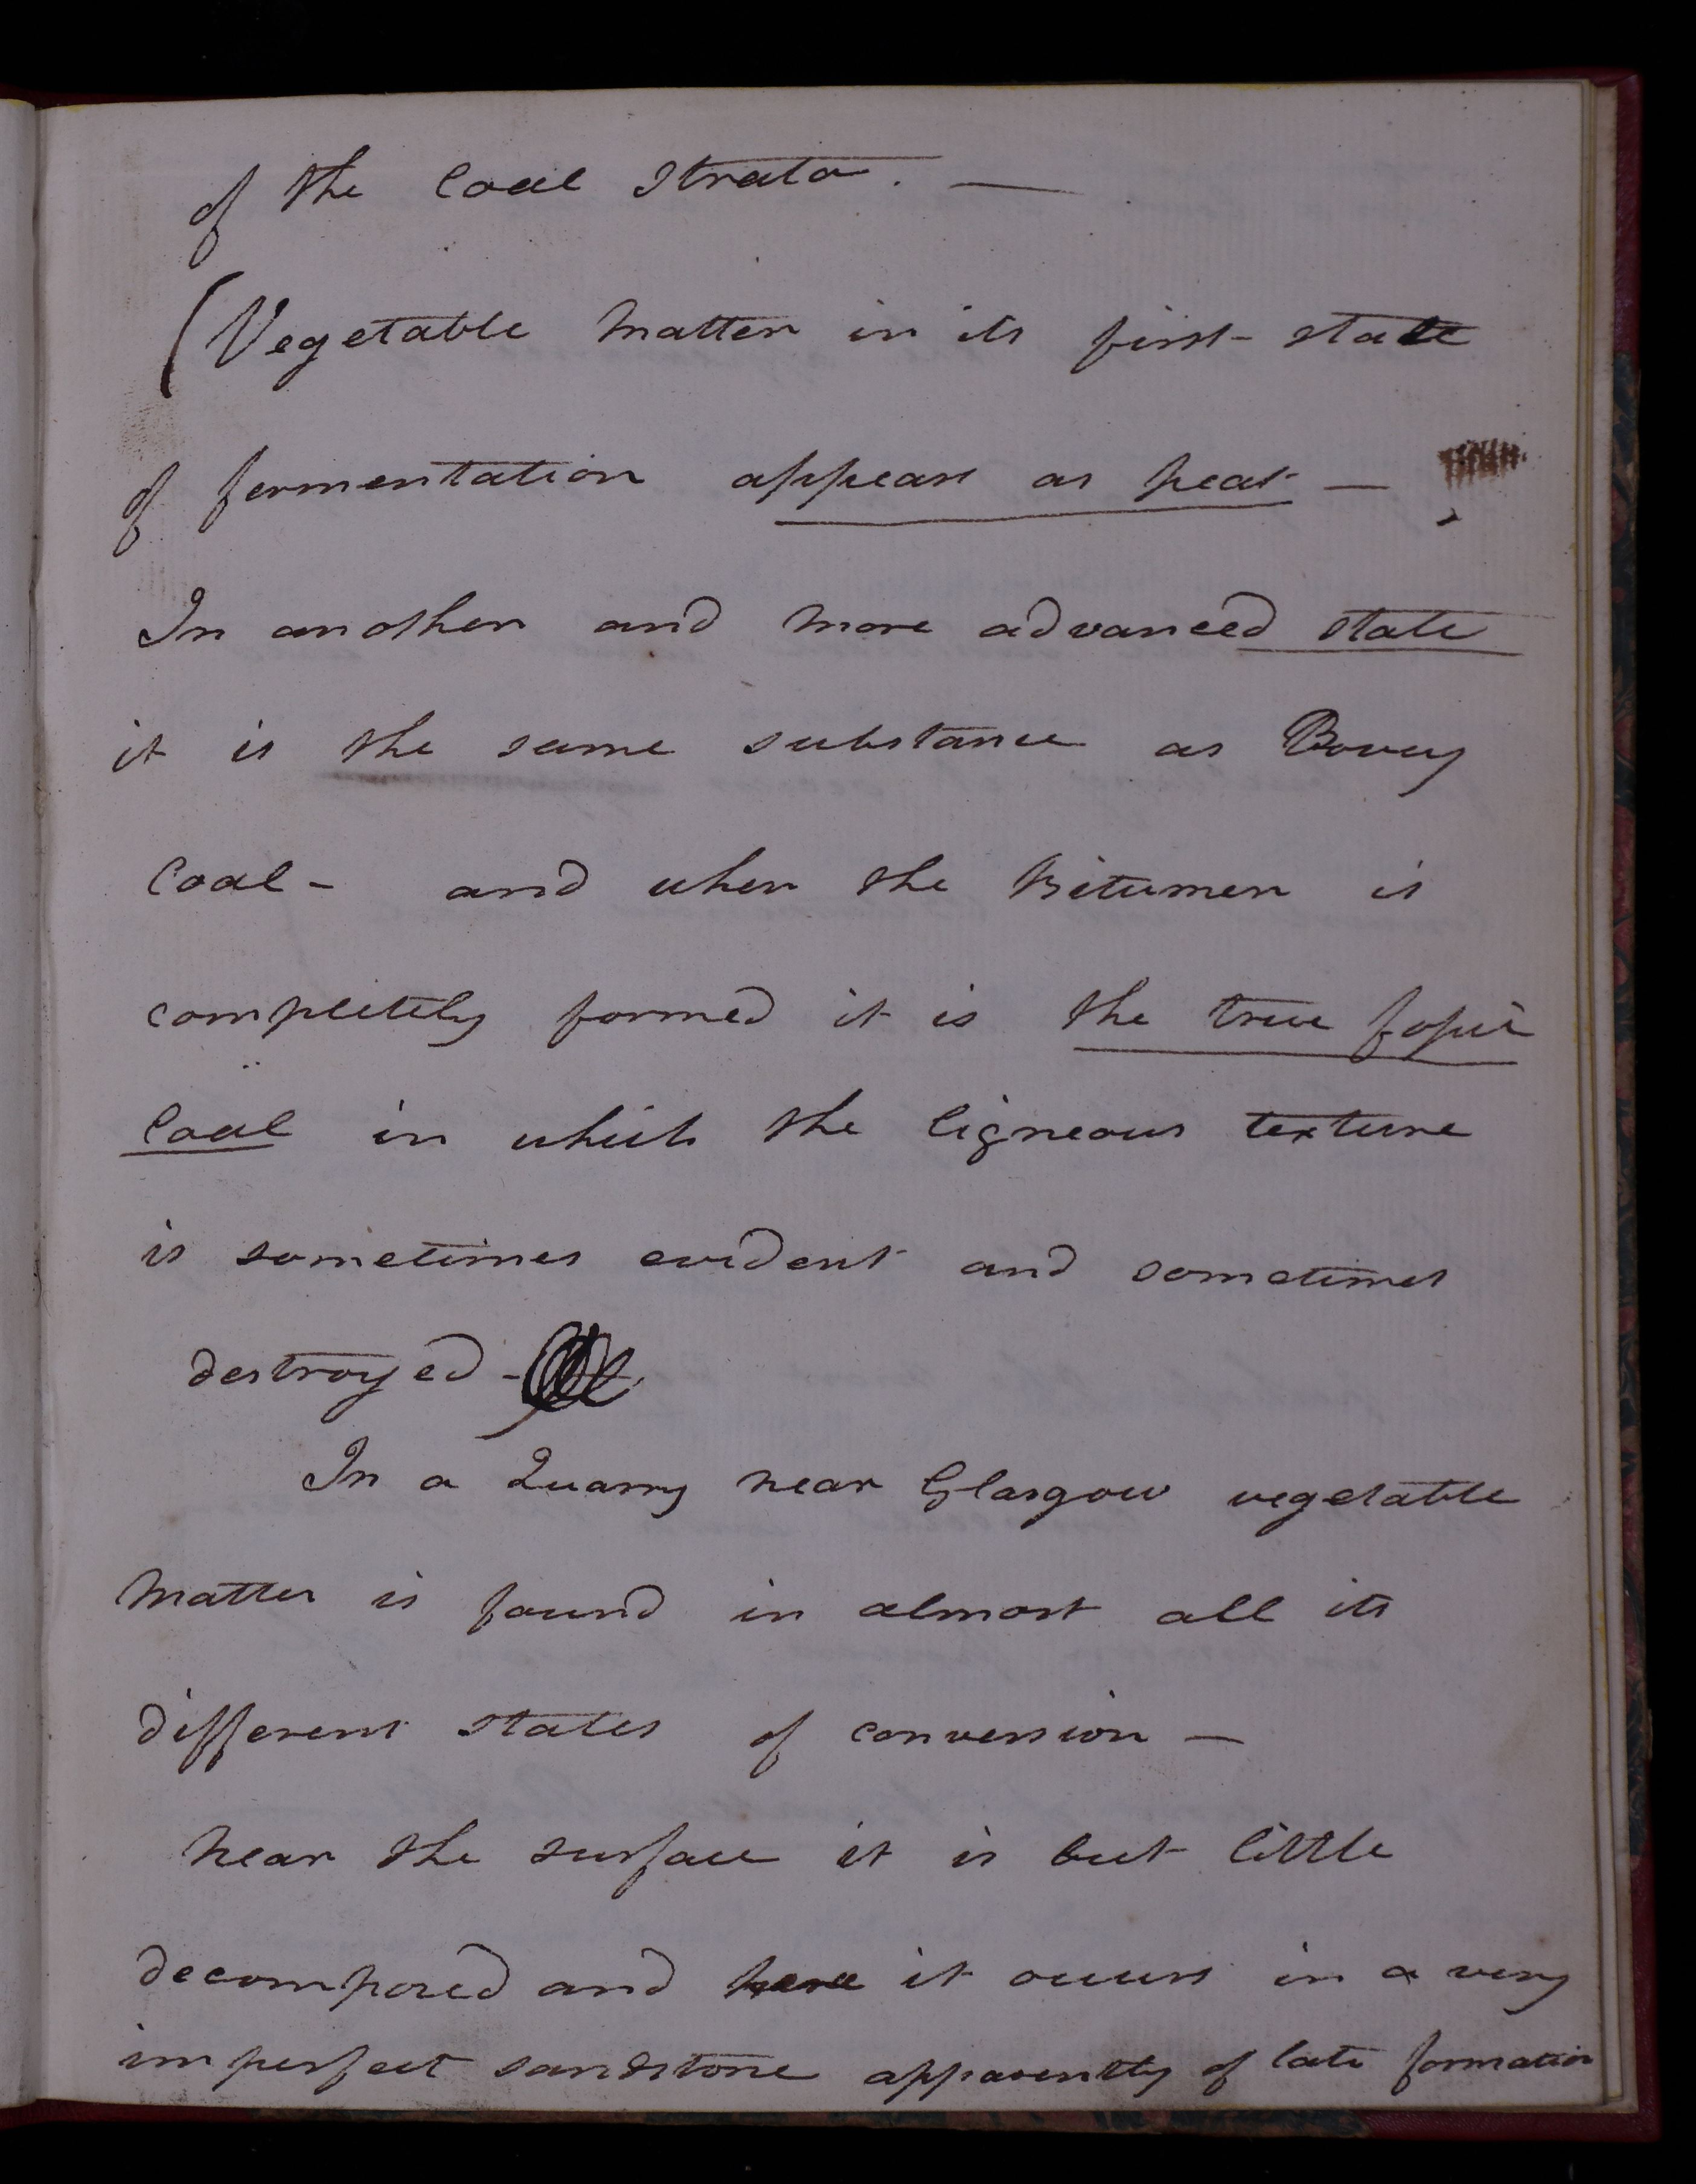 of the Coal Strata. —
(Vegetable Matter in its first state
of fermentation appears as peat —
In another and more advanced state
it is the same substance as Bovey
Coal - and when the Bitumen is
completely formed it is the true fossil
Coal in which the ligneous texture
is sometimes evident and sometimes
destroyed -
In a Quarry near Glasgow vegetable
Matter is found in almost all its
different states of conversion —
near the surface it is but little
decomposed and here it occurs in a very
imperfect sandstone apparently of late formation